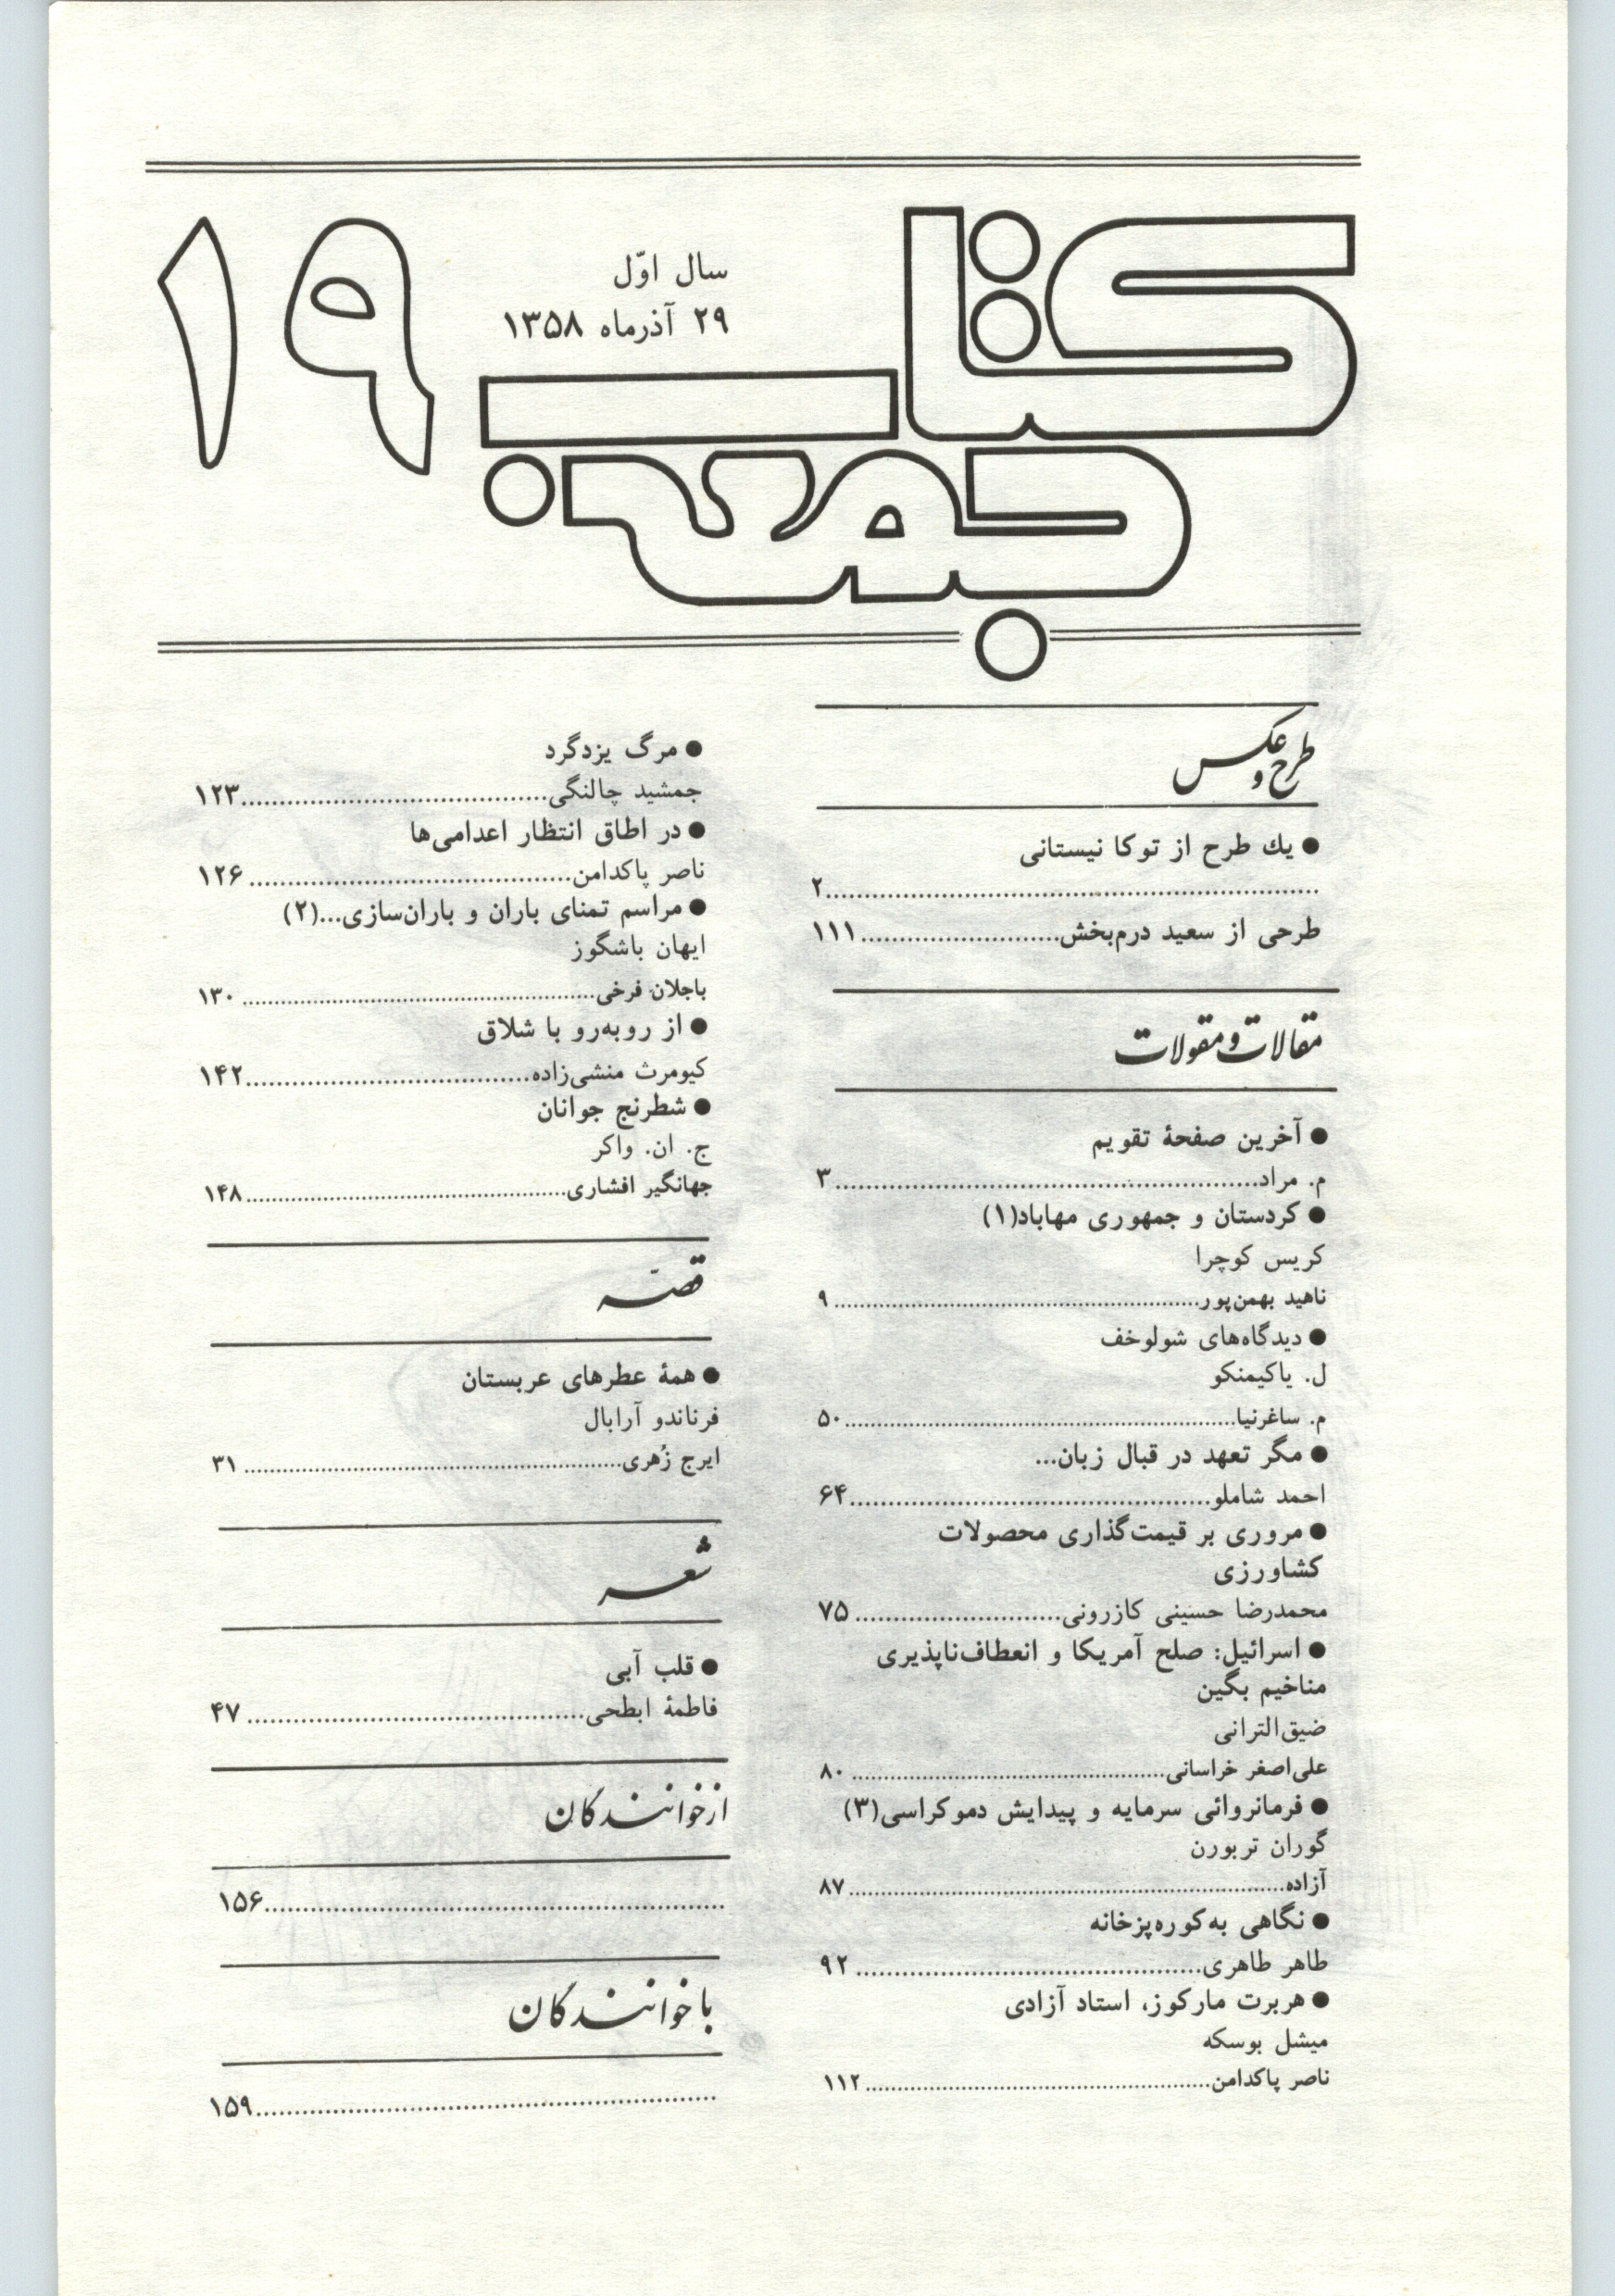 کتاب جمعه
۱۹
سال اوّل
۲۹ آذرماه ۱۳۵۸
طرح و عکس
● یك طرح از توکا نیستانی
........................................ ۲
طرحی از سعید درم‌بخش.......................... ۱۱۱
مقالات و مقولات
● آخرین صفحهٔ تقویم
م. مراد........................................ ۳
● کردستان و جمهوری مهاباد(۱)
کریس کوچرا
ناهید بهمن‌پور........................................ ۹
● دیدگاه‌های شولوخف
ل. یاکیمنکو
م. ساغرنیا........................................ ۵۰
● مگر تعهد در قبال زبان...
احمد شاملو........................................ ۶۴
● مروری بر قیمت‌گذاری محصولات
کشاورزی
محمدرضا حسینی کازرونی........................... ۷۵
● اسرائیل: صلح آمریکا و انعطاف‌ناپذیری
مناخیم بگین
ضیق‌الترانی
علی‌اصغر خراسانی........................................ ۸۰
● فرمانروائی سرمایه و پیدایش دموکراسی(۳)
گوران تربورن
آزاده........................................ ۸۷
● نگاهی به‌کوره‌پزخانه
طاهر طاهری........................................ ۹۲
● هربرت مارکوز، استاد آزادی
میشل بوسکه
ناصر پاکدامن........................................ ۱۱۲
● مرگ یزدگرد
جمشید چالنگی........................................ ۱۲۳
● در اطاق انتظار اعدامی‌ها
ناصر پاکدامن........................................ ۱۲۶
● مراسم تمنای باران و باران‌سازی...(۲)
ایهان باشگوز
باجلان فرخی........................................ ۱۳۰
● از روبه‌رو با شلاق
کیومرث منشی‌زاده........................................ ۱۴۲
● شطرنج جوانان
ج. ان. واکر
جهانگیر افشاری........................................ ۱۴۸
قصّه
● همهٔ عطرهای عربستان
فرناندو آرابال
ایرج زُهری........................................ ۳۱
شعر
● قلب آبی
فاطمهٔ ابطحی........................................ ۴۷
از خوانندگان
........................................ ۱۵۶
با خوانندگان
........................................ ۱۵۹